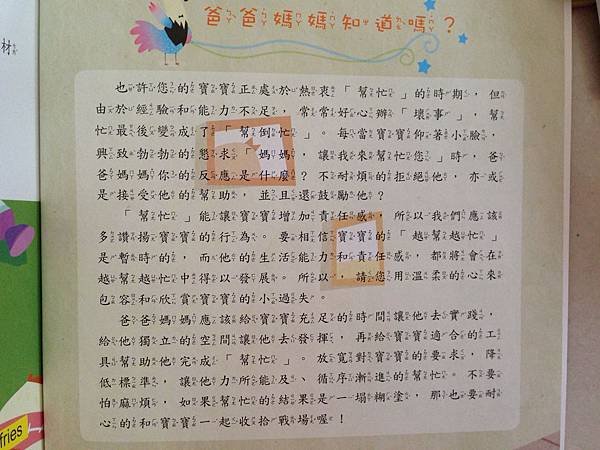 爸爸媽媽知道嗎？
材
也許您的寶寶正處於熱衷「幫忙」的時期，但
由於經驗和能力不足，常常好心辦「壞事」，幫
忙最後變成了「幫倒忙」。每當寶寶仰著小臉，
興致勃勃的懇求「媽媽，讓我來幫忙您」時，爸
爸媽媽你的反應是什麼？不耐煩的拒絕他，亦或
是接受他的幫助，並且還鼓勵他？
「幫忙」能讓寶寶增加責任感，所以我們應該
多讚揚寶寶的行為。要相信寶寶的「越幫越忙」
是暫時的，而他的生活能力和責任感，都將會在
越幫越忙中得以發展。所以，請您用溫柔的心來
包容和欣賞寶寶的小過失。
爸爸媽媽應該給寶寶充足的時間讓他去實踐，
給他獨立的空間讓他去發揮，再給寶寶適合的工
具幫助他完成「幫忙」。放寬對寶寶的要求，降
低標準，讓他力所能及、循序漸進的幫忙。不要
怕麻煩，如果幫忙的結果是一塌糊塗，那也要耐
心的和寶寶一起收拾戰場喔！
fries